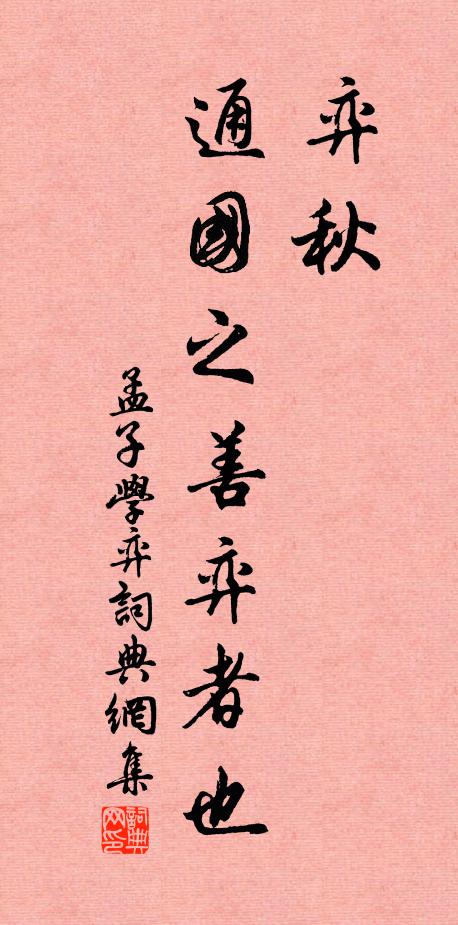 弈秋
通國之善弈者也
孟子學弈詞典網集
詞典
网印